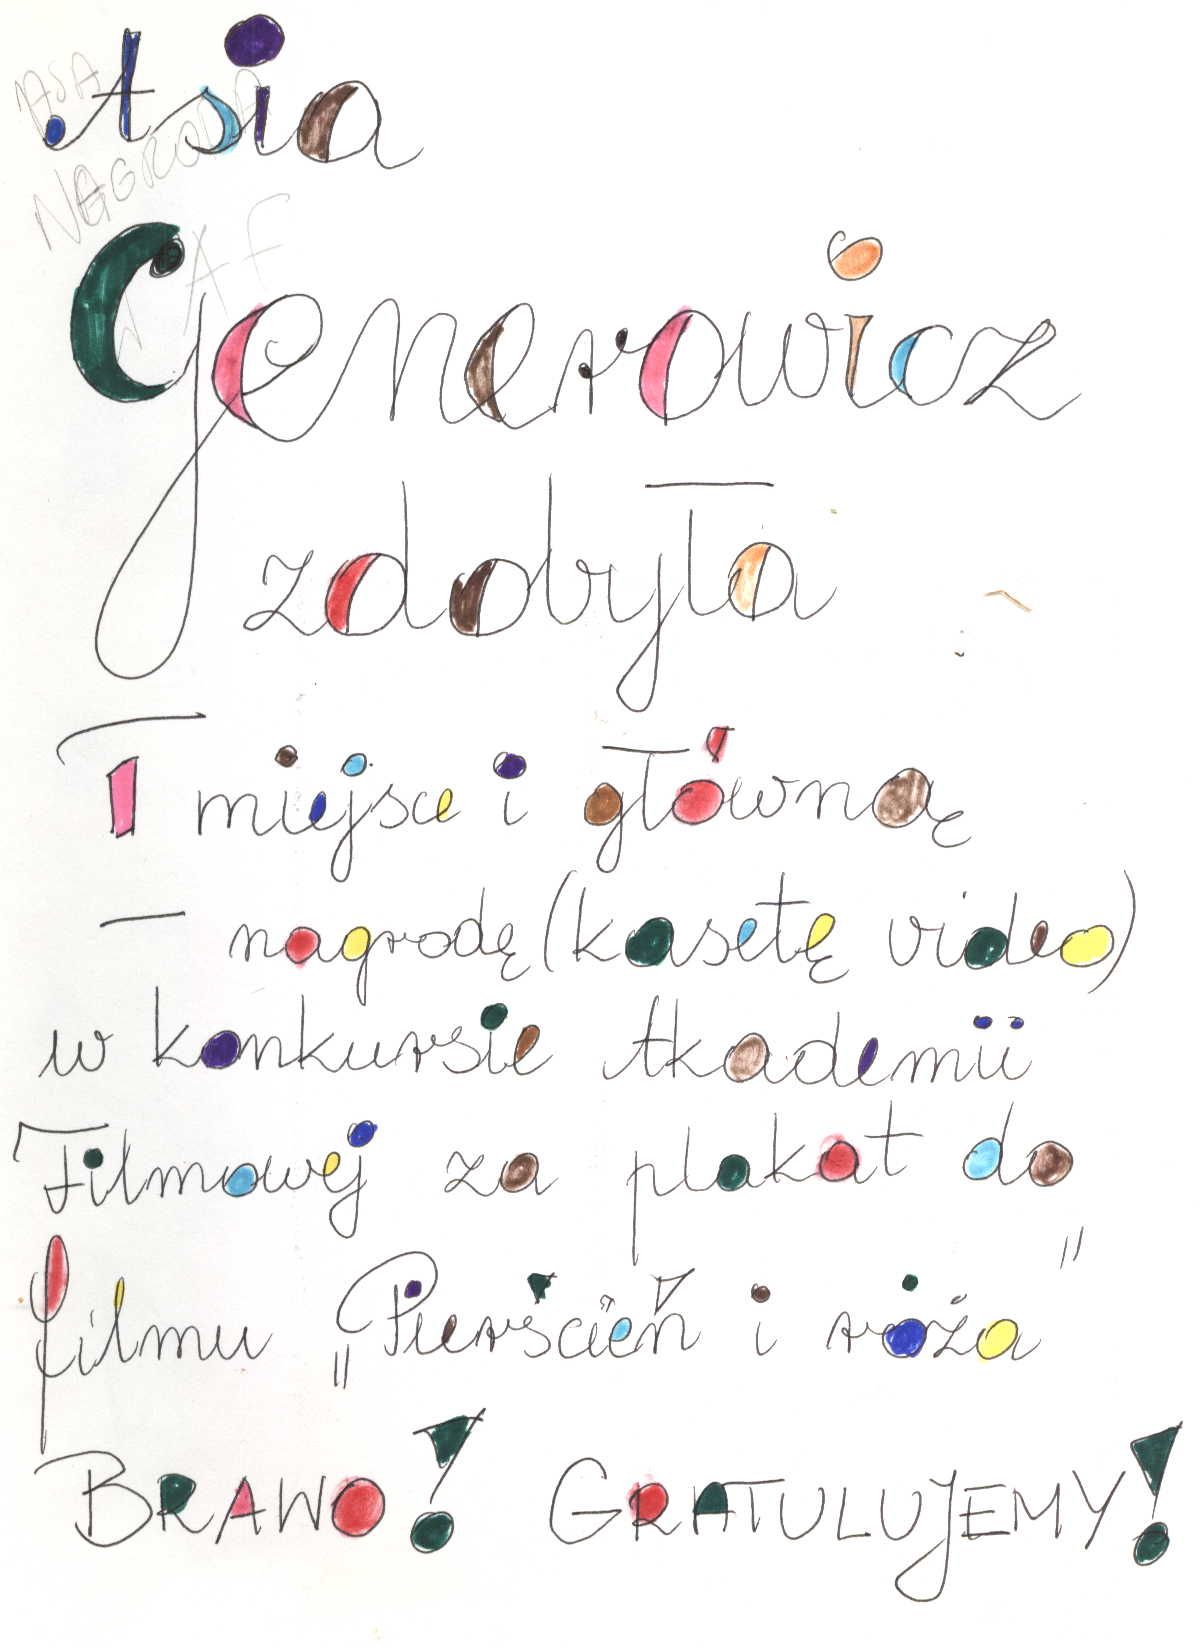 Asia
NAGRODA
Generowicz
zdobyła
I miejsce i główną
– nagrodę (kasetę video)
w konkursie Akademii
Filmowej za plakat do
filmu „Pierścień i róża"
BRAWO! GRATULUJEMY!